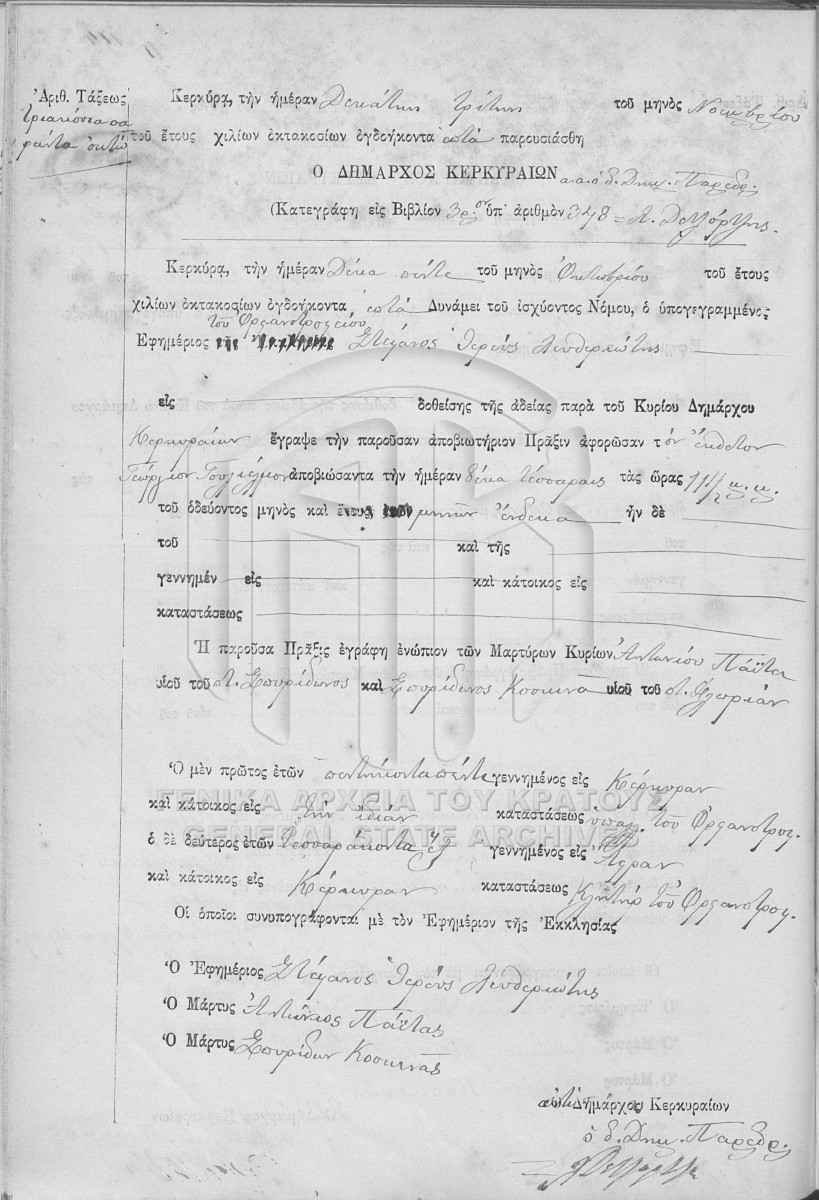 Ἀριθ. Τάξεως
τριακόσια σα
ράντα ὀκτώ
Κερκύρᾳ, τὴν ἡμέραν Δεκάτης τρίτης τοῦ μηνὸς Νοεμβρίου
τοῦ ἔτους χιλίων ὀκτακοσίων ὀγδοήκοντα ἑπτά παρουσιάσθη
Ὁ ΔΗΜΑΡΧΟΣ ΚΕΡΚΥΡΑΙΩΝ α.α. ὁ δ. Δημ. Παρεδρ.
(Κατεγράφη εἰς Βιβλίον 3ον ὑπ' ἀριθμὸν 348
Κερκύρᾳ, τὴν ἡμέραν Δέκα πέντε τοῦ μηνὸς Ὀκτωβρίου τοῦ ἔτους
χιλίων ὀκτακοσίων ὀγδοήκοντα ἑπτά Δυνάμει τοῦ ἰσχύοντος Νόμου, ὁ ὑπογεγραμμένος
τοῦ Ὀρφανοτροφείου
Ἐφημέριος τῆς Στέφανος Ἱερεὺς
εἰς δοθείσης τῆς ἀδείας παρὰ τοῦ Κυρίου Δημάρχου
Κερκυραίων ἔγραψε τὴν παροῦσαν ἀποβιωτήριον Πρᾶξιν ἀφορῶσαν τὸν ἔκθετον
Γεώργιον ἀποβιώσαντα τὴν ἡμέραν δέκα τέσσαρας τὰς ὥρας 11 1/2 π.μ.
τοῦ ὁδεύοντος μηνὸς καὶ ἔτους, ἐτῶν μηνῶν ἕνδεκα ἦν δὲ
τοῦ καὶ τῆς
γεννημέν εἰς καὶ κάτοικος εἰς
καταστάσεως
Ἡ παροῦσα Πρᾶξις ἐγράφη ἐνώπιον τῶν Μαρτύρων Κυρίων Ἀντωνίου Πάϊτα
υἱοῦ τοῦ π. Σπυρίδωνος καὶ Σπυρίδωνος Κοσκινᾶ υἱοῦ τοῦ π. Φλωριάν
Ὁ μὲν πρῶτος ἐτῶν πεντήκοντα πέντε γεννημένος εἰς Κέρκυραν
καὶ κάτοικος εἰς τὴν ἰδίαν καταστάσεως ὑπαλ. τοῦ Ὀρφανοτροφ.
ὁ δὲ δεύτερος ἐτῶν τεσσαράκοντα ἓξ γεννημένος εἰς
καὶ κάτοικος εἰς Κέρκυραν καταστάσεως Κλητὴρ τοῦ Ὀρφανοτροφ.
Οἱ ὁποῖοι συνυπογράφονται μὲ τὸν Ἐφημέριον τῆς Ἐκκλησίας
ΓΕΝΙΚΑ ΑΡΧΕΙΑ ΤΟΥ ΚΡΑΤΟΥΣ
GENERAL STATE ARCHIVES
Ὁ Ἐφημέριος Στέφανος Ἱερεὺς
Ὁ Μάρτυς Ἀντώνιος Πάϊτας
Ὁ Μάρτυς Σπυρίδων Κοσκινᾶς
ἀντὶ Δημάρχου Κερκυραίων
ὁ δ. Δημ. Παρεδρ.